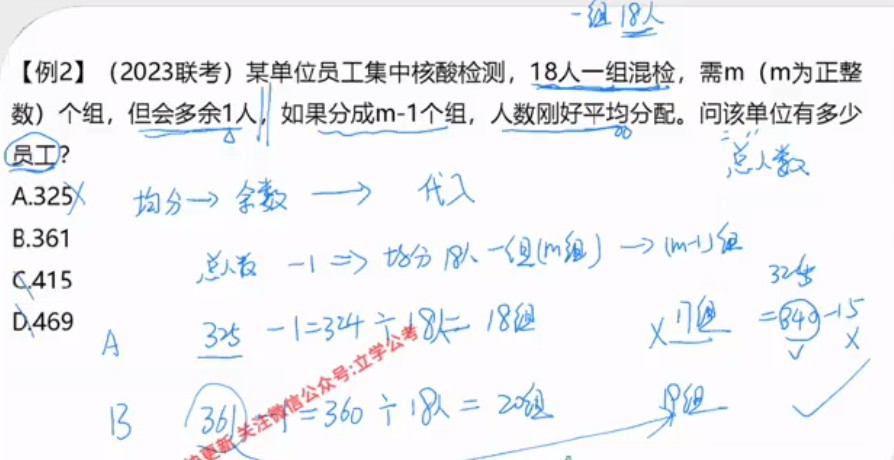 一组18人
【例2】（2023联考）某单位员工集中核酸检测，18人一组混检，需m（m为正整
数）个组，但会多余1人，如果分成m-1个组，人数刚好平均分配。问该单位有多少
员工？
总人数
A.325
均分→余数→代入
B.361
总人数 -1 => 均分 18人一组(m组) → (m-1)组
C.415
325
D.469
A 325 -1=324÷18人=18组 × 17组 =340-15
B 361 -1=360÷18人=20组 19组
更新 关注微信公众号:立学公考